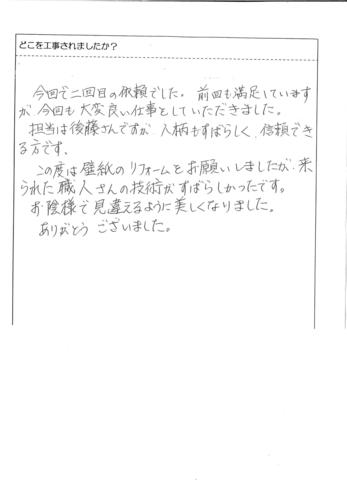 どこを工事されましたか？
今回で二回目の依頼でした。前回も満足しています
が今回も大変良い仕事をしていただきました。
担当は後藤さんですが、人柄もすばらしく、信頼でき
る方です。
この度は壁紙のリフォームをお願いしましたが、来
られた職人さんの技術がすばらしかったです。
お陰様で見違えるように美しくなりました。
ありがとうございました。